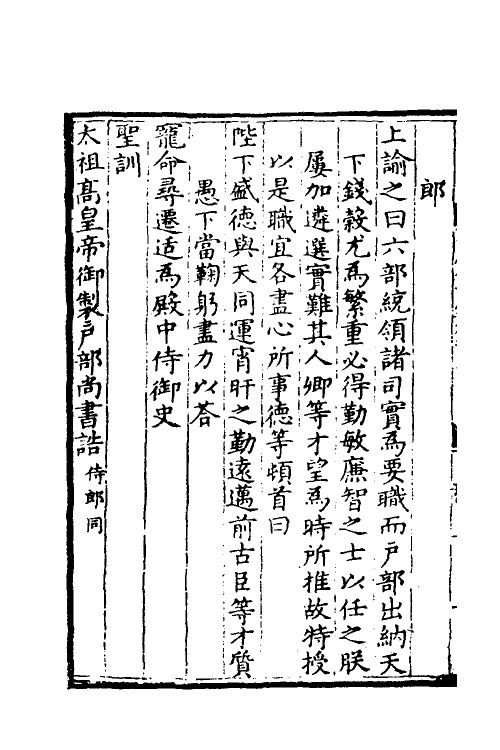 郎
上諭之曰六部統領諸司實爲要職而戶部出納天
下錢穀尤爲繁重必得勤敏廉智之士以任之朕
屢加遴選實難其人卿等才望爲時所推故特授
以是職宜各盡心所事德等頓首曰
陛下盛德與天同運宵旰之勤遠邁前古臣等才質
愚下當鞠躬盡力以荅
寵命尋遷适爲殿中侍御史
聖訓
太祖高皇帝御製戶部尚書誥侍郎同